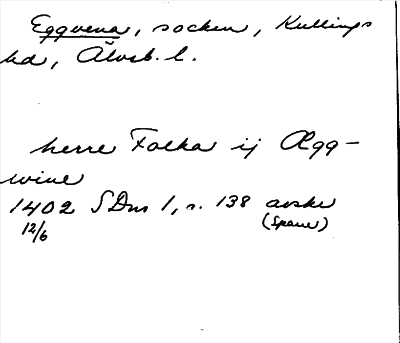 Eggvena, socken, Kullings
hd, Älvsb. l.
herre Folka ij Ægg-
wine
1402 SDns 1, s. 138 avskr
12/6 (Spane)